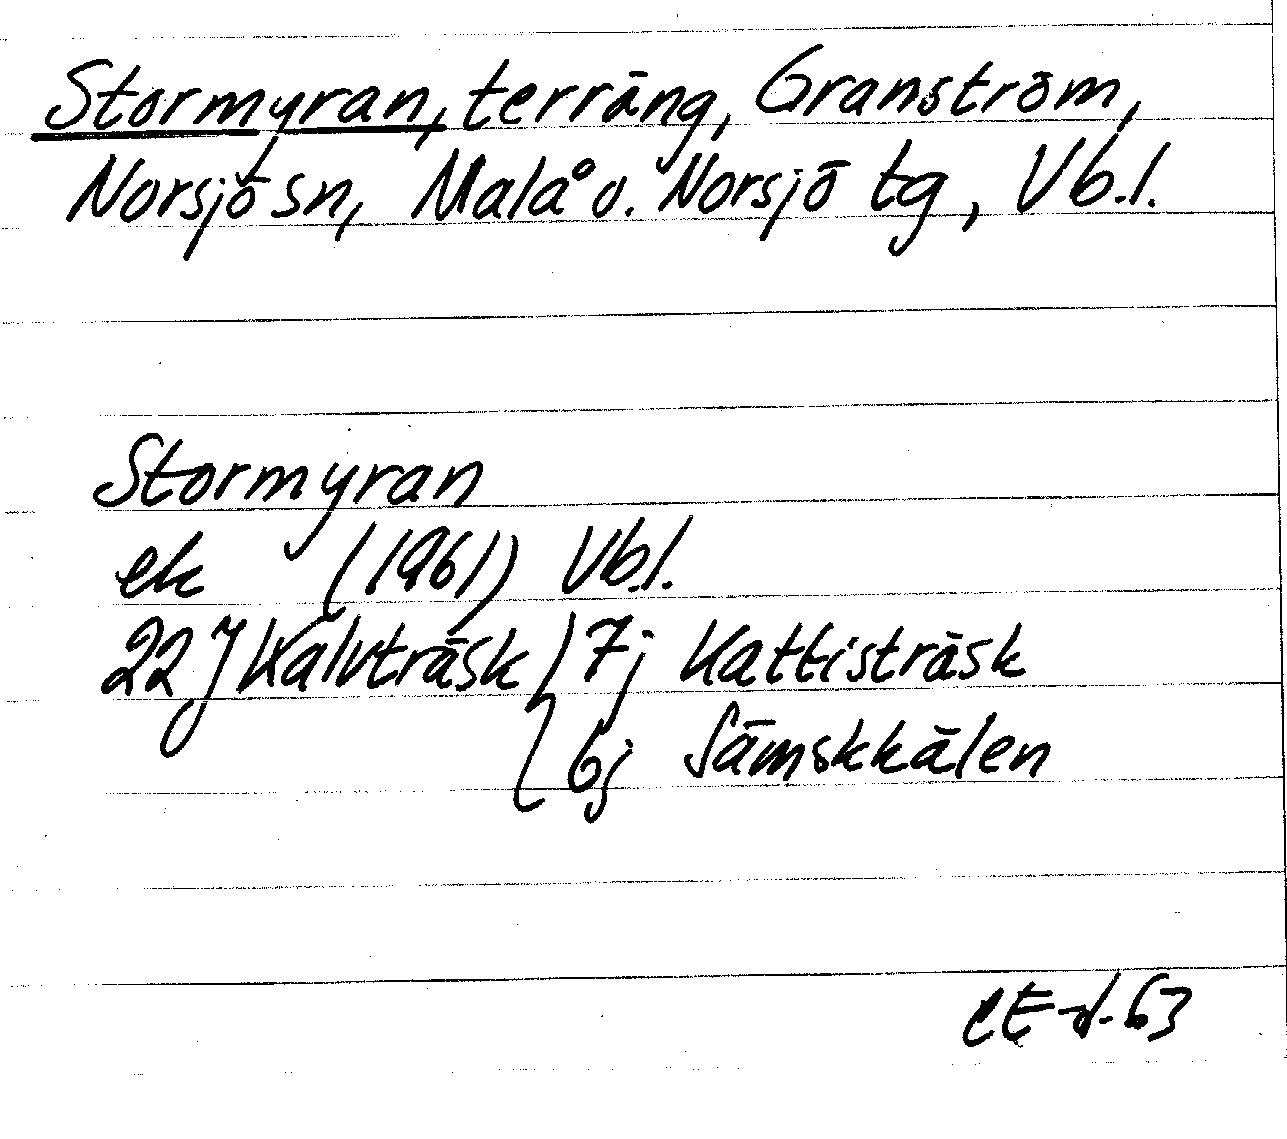 Stormyran, terräng, Granström,
Norsjö sn, Malå o. Norsjö tg, Vb.l.
Stormyran
ek (1961) Vb.l.
22 J Kalvträsk 7j Kattisträsk
6j Sämskkälen